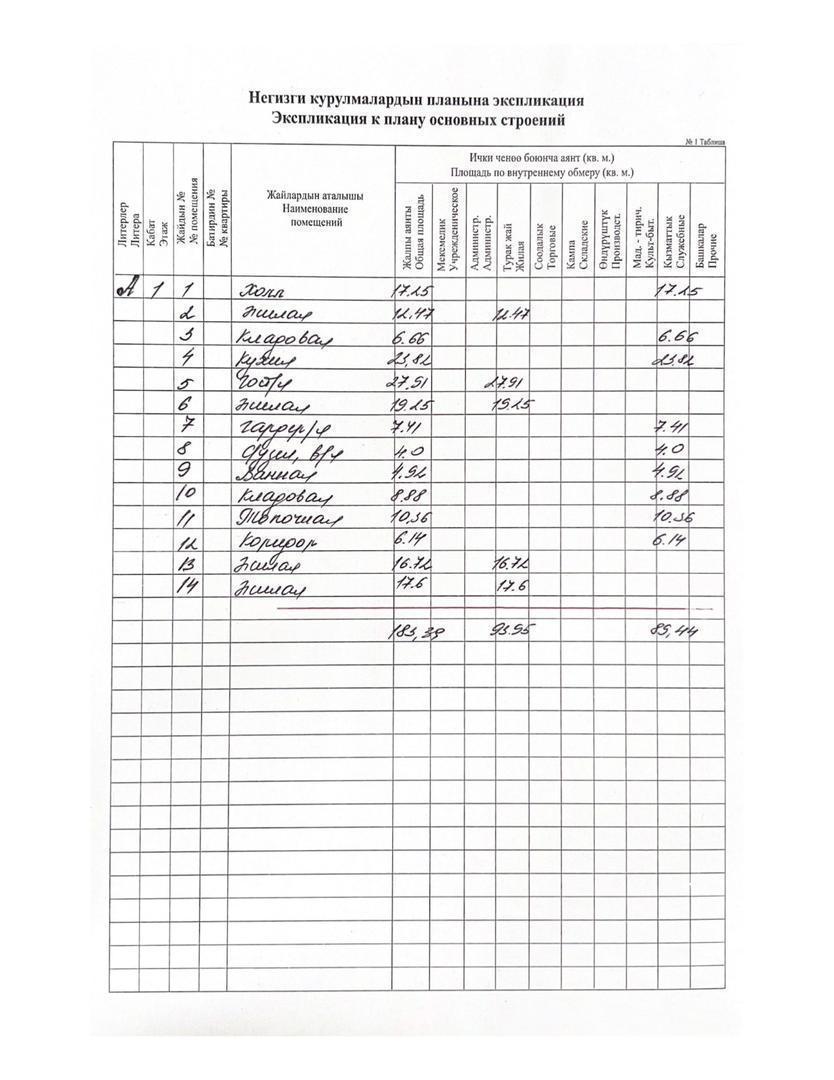 Негизги курулмалардын планына экспликация
Экспликация к плану основных строений
№ 1 Таблица
Литерлер Литера
Кабат Этаж
Жайдын № № помещения
Батирдин № № квартиры
Жайлардын аталышы
Наименование
помещений
Ички ченөө боюнча аянт (кв. м.)
Площадь по внутреннему обмеру (кв. м.)
Жалпы аянты Общая площадь
Мекемелик Учрежденическое
Администр. Администр.
Турак жай Жилая
Соодалык Торговые
Кампа Складские
Өндүрүштүк Производст.
Мад. - тирич. Культ-быт.
Кызматтык Служебные
Башкалар Прочие
А 1 1 Холл 17.25 17.25
2 Жилая 12,47 12.47
3 Кладовая 6.66 6.66
4 Кухня 23,82 23.82
5 Гост/я 27,91 27.91
6 Жилая 19.25 19.25
7 Гардер/я 7.41 7.41
8 4.0 4.0
9 Ванная 4.92 4.92
10 Кладовая 8.88 8.88
11 Топочная 10.36 10.36
12 Коридор 6.14 6.14
13 Жилая 16.72 16.72
14 Жилая 17.6 17.6
183,39 93.95 89,44